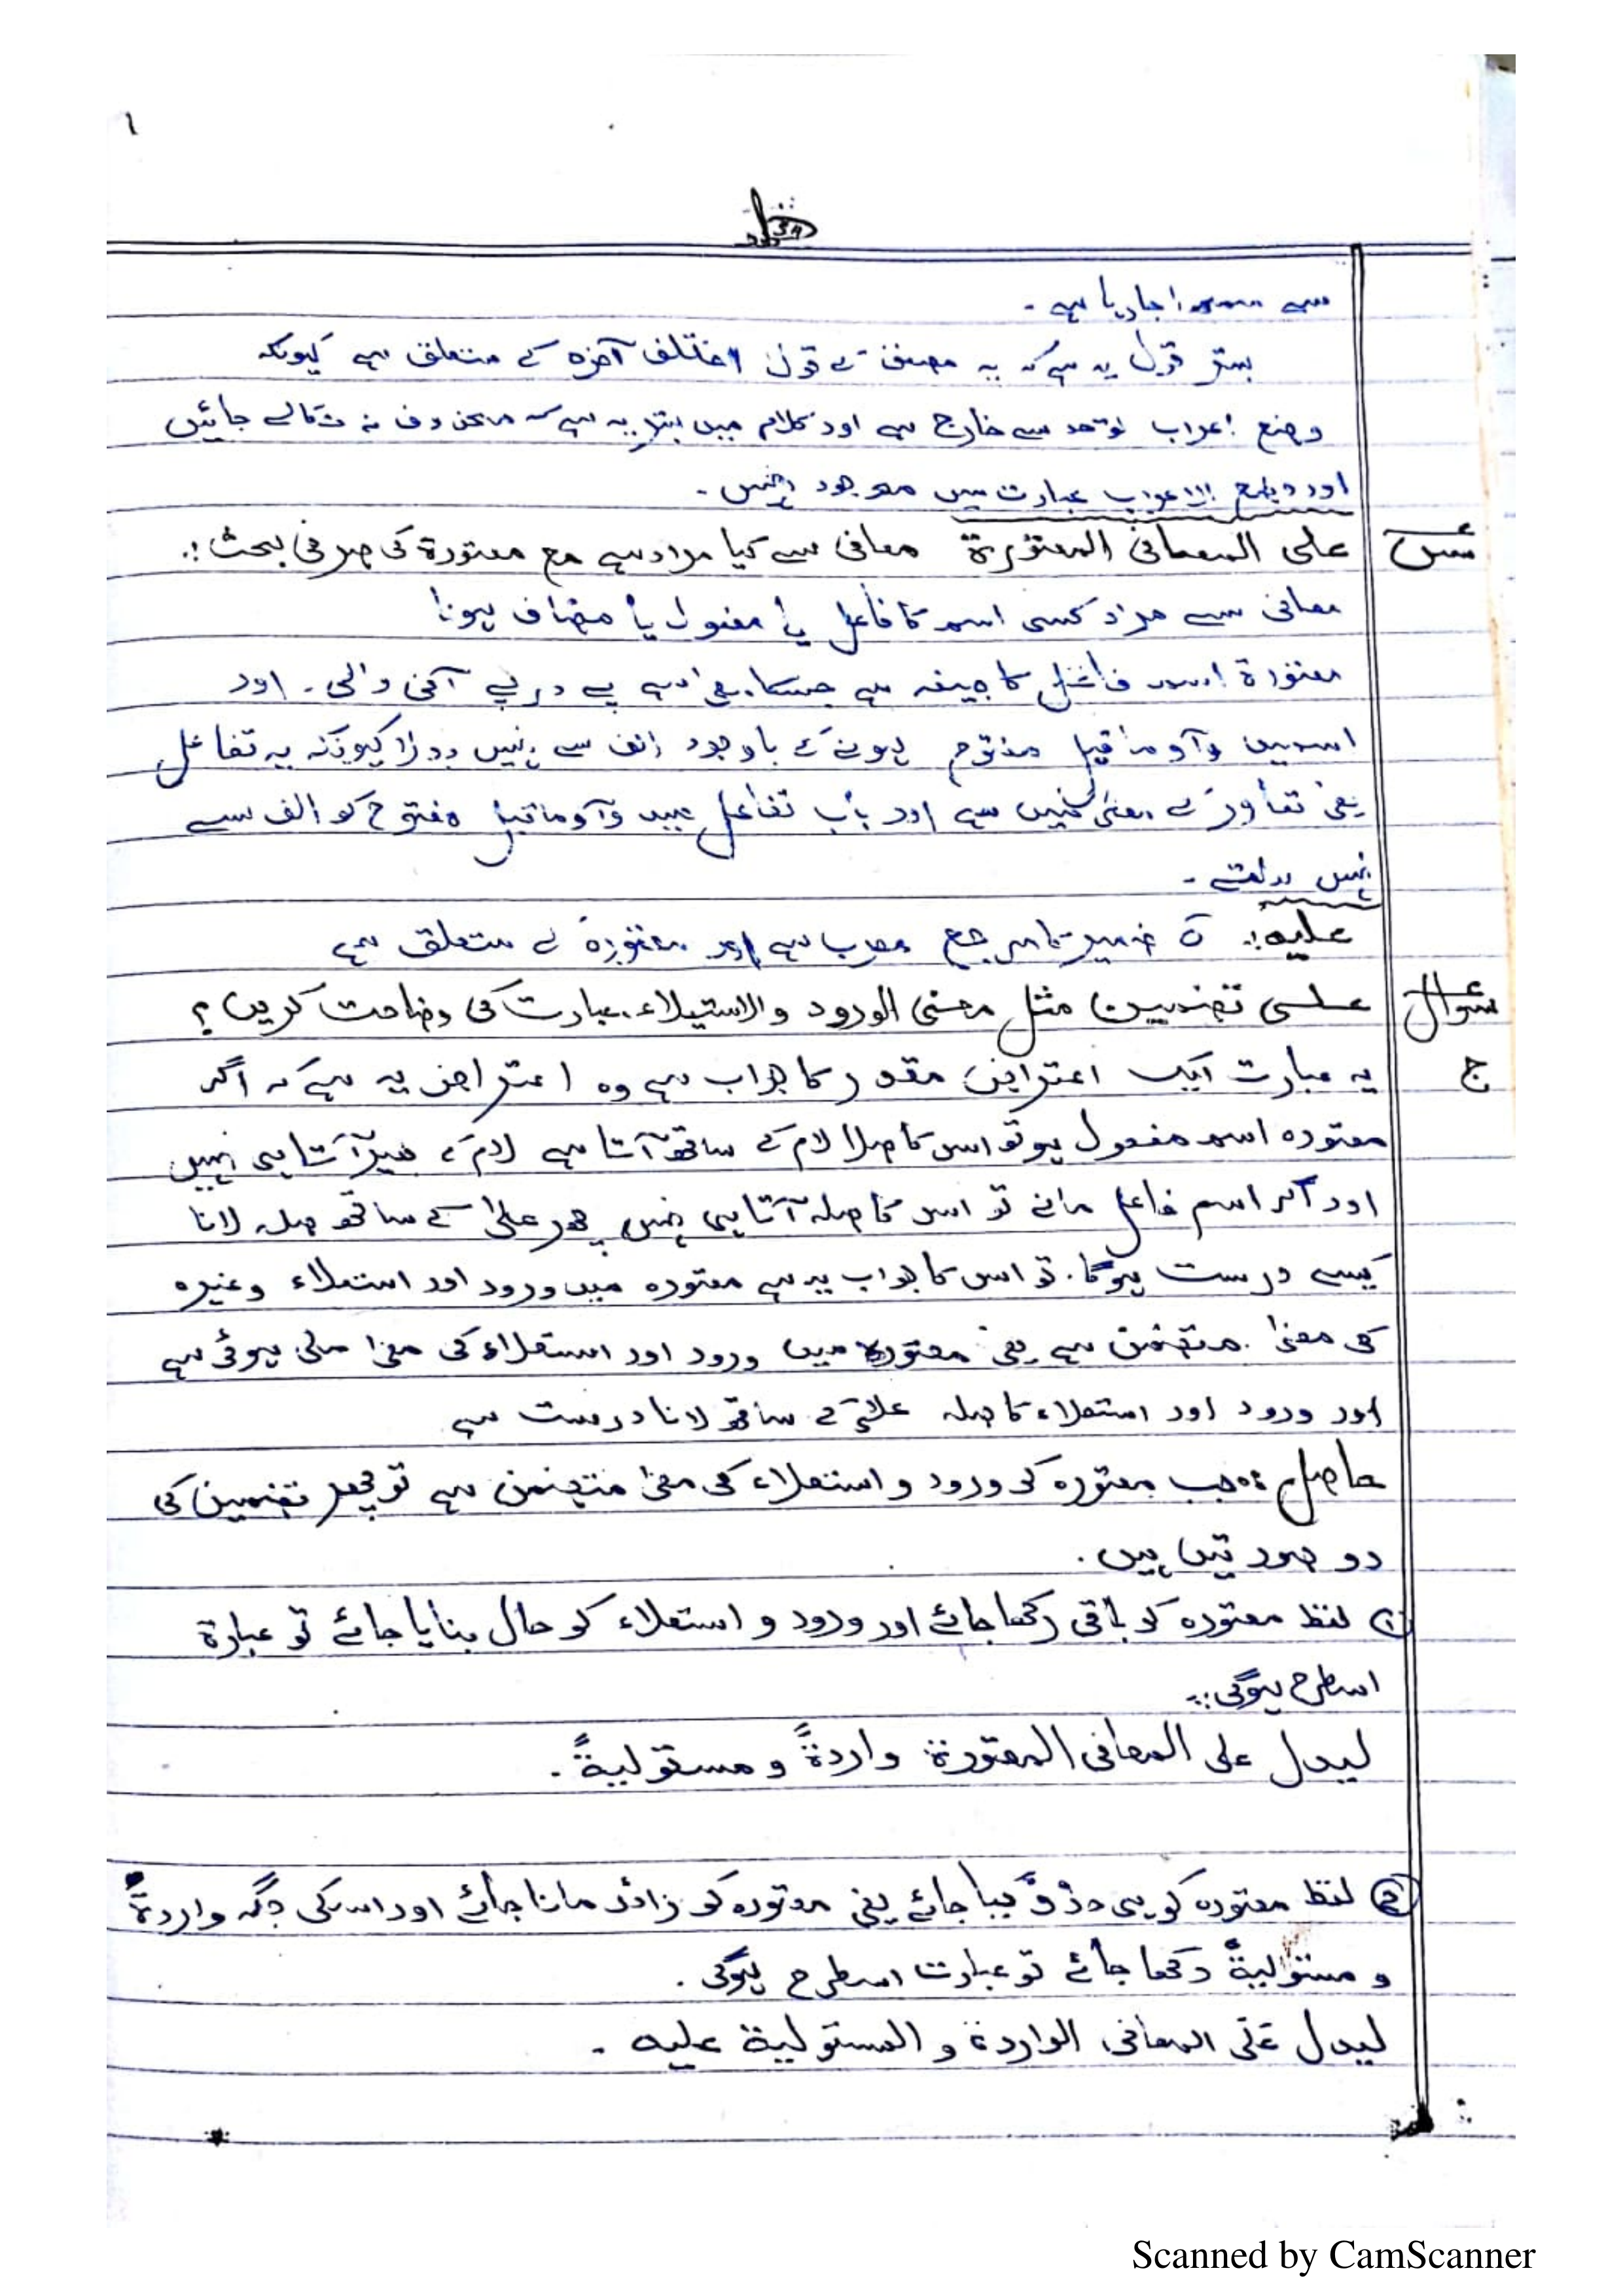 ۱
سے سمجھا جا رہا ہے ۔
بہتر قول یہ ہے کہ یہ مصنف کے قول اختلف آخرہ کے متعلق ہے کیونکہ
وضع اعراب تو حد سے خارج ہے اور کلام میں بہتر یہ ہے کہ محذوف نہ نکالے جائیں
اور وضع الاعراب عبارت میں موجود نہیں ۔
س علی المعانی المعتورة معانی سے کیا مراد ہے مع معتورة کی صرفی بحث :
معانی سے مراد کسی اسم کا فاعل یا مفعول یا مضاف ہونا
معتورة اسم فاعل کا صیغہ ہے جسکا معنی ہے پے در پے آنی والی ۔ اور
اسمیں وآو ماقبل مفتوح ہونے کے باوجود الف سے نہیں بدلا کیونکہ یہ تفاعل
یعنی تعاور کے معنی میں ہے اور باب تفاعل میں وآو ماقبل مفتوح کو الف سے
نہیں بدلتے ۔
علیہ : ہ ضمیر کا مرجع معرب ہے اور معتورة کے متعلق ہے
سوال علی تضمین مثل معنی الورود والاستیلاء عبارت کی وضاحت کریں ؟
ج یہ عبارت ایک اعتراض مقدر کا جواب ہے وہ اعتراض یہ ہے کہ اگر
معتورہ اسم مفعول ہو تو اس کا صلا لام کے ساتھ آتا ہے لام کے غیر آتا ہی نہیں
اور اگر اسم فاعل مانے تو اس کا صلہ آتا ہی نہیں پھر علیٰ کے ساتھ صلہ لانا
کیسے درست ہوگا ۔ تو اس کا جواب یہ ہے معتورہ میں ورود اور استعلاء وغیرہ
کی معنیٰ متضمن ہے یعنی معتورہ میں ورود اور استعلاء کی معنیٰ ملی ہوئی ہے
اور ورود اور استعلاء کا صلہ علیٰ کے ساتھ لانا درست ہے
حاصل : جب معتورہ کی ورود و استعلاء کی معنی متضمن ہے تو پھر تضمین کی
دو صورتیں ہیں ۔
① لفظ معتورہ کو باقی رکھا جائے اور ورود و استعلاء کو حال بنایا جائے تو عبارة
اسطرح ہوگی :
لیدل علی المعانی المعتورة واردةً و مستولیةً ۔
② لفظ معتورہ کو ہی حذف کیا جائے یعنی معتورہ کو زائد مانا جائے اور اسکی جگہ واردةً
و مستولیةً رکھا جائے تو عبارت اسطرح ہوگی ۔
لیدل علی المعانی الواردة و المستولیة علیہ ۔
Scanned by CamScanner